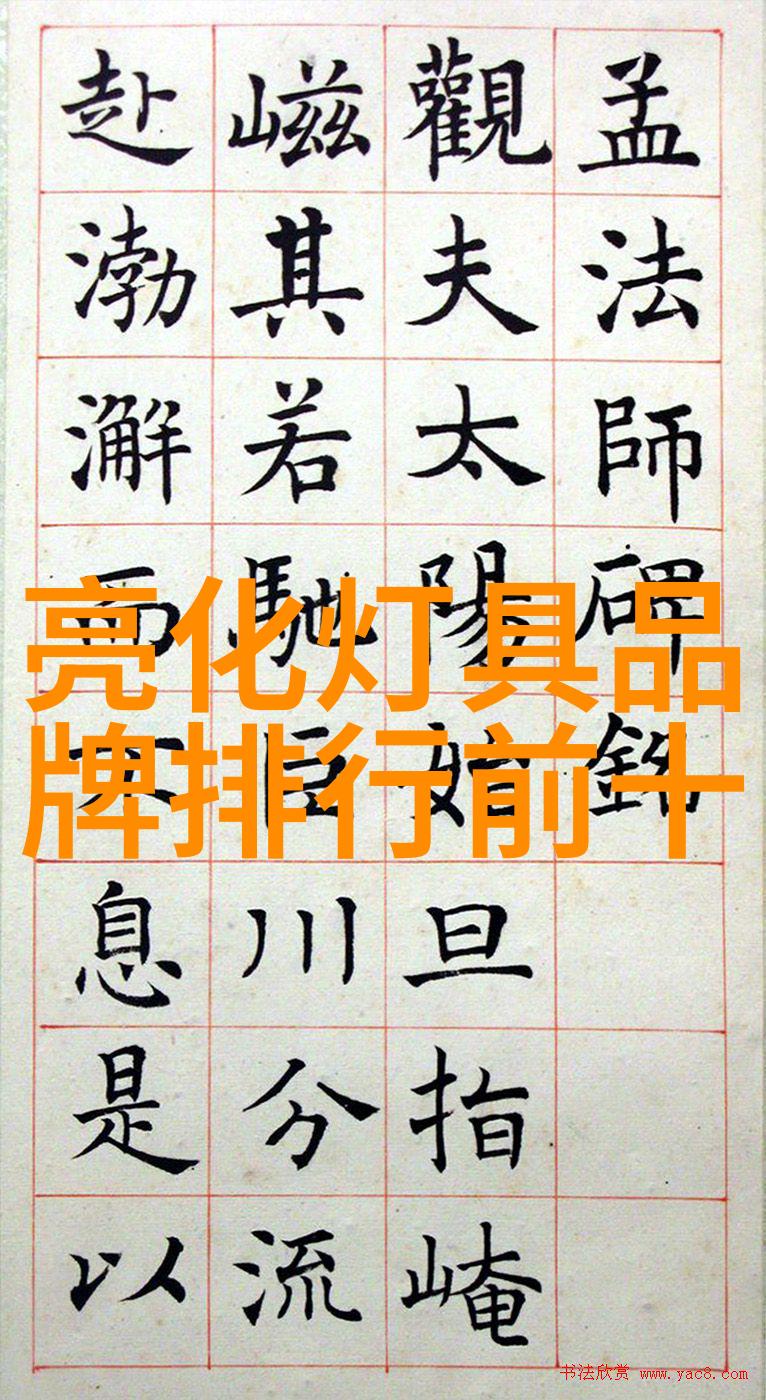 孟法師碑銘
觀夫太陽始旦指崦
嵫其若馳巨川分流
赴渤澥而不息是以
亮化灯具品
牌排行前十
书法欣赏 www.yac8.com